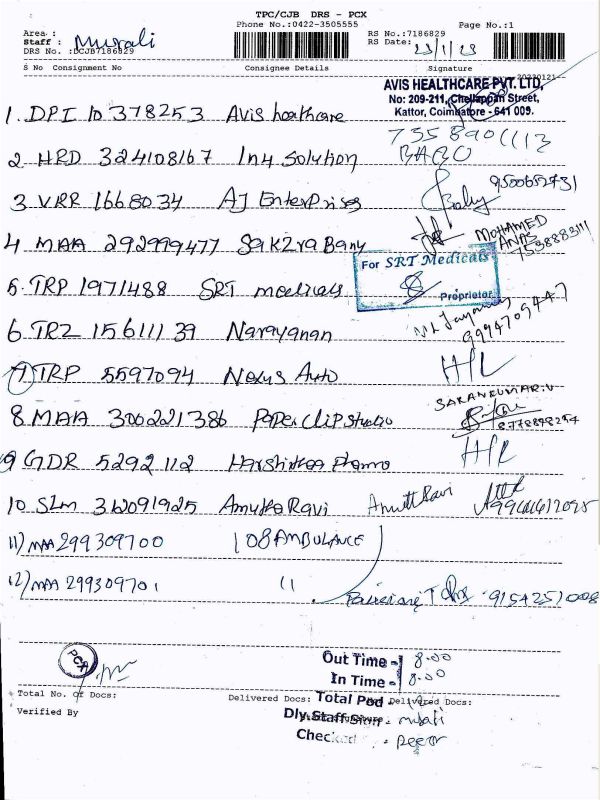 TPC/CJB DRS - PCX
Phone No.:0422-3505555
Page No.:1
Area :
Staff : Murali
DRS No :DCJB7186829
RS No.:7186829
RS Date: 23/1/23
S No Consignment No Consignee Details Signature
AVIS HEALTHCARE PVT. LTD,
No: 209-211, Chellappan Street,
Kattor, Coimbatore - 641 009.
1. DPI 10378253 Avis healthcare
7358901113
2 HRD 324108167 In4 Solution BABU
3 VRR 1668034 AJ EnterPrises Baby
4 MAA 292999477 SaKZra Banu MOHAMED ANAS
5. TRP 1971488 SRT medicals
For SRT Medicals
Proprietor
6 TRZ 15611139 Narayanan 9994709447
7 TRP 5597094 Nexus Auto H/L
8 MAA 300221386 PaperClip Studio SARANKUMAR.V
9 GDR 5292112 H/L
10 SLM 312091925 Amutha Ravi
11) MAA 299309700 108 AMBULANCE
12) MAA 299309701 11
PCX
Out Time - 8.00
In Time - 8.00
Total No. Of Docs: Delivered Docs: Total Pod - Delivered Docs:
Verified By Dly.Staff Sign - murali
Checked